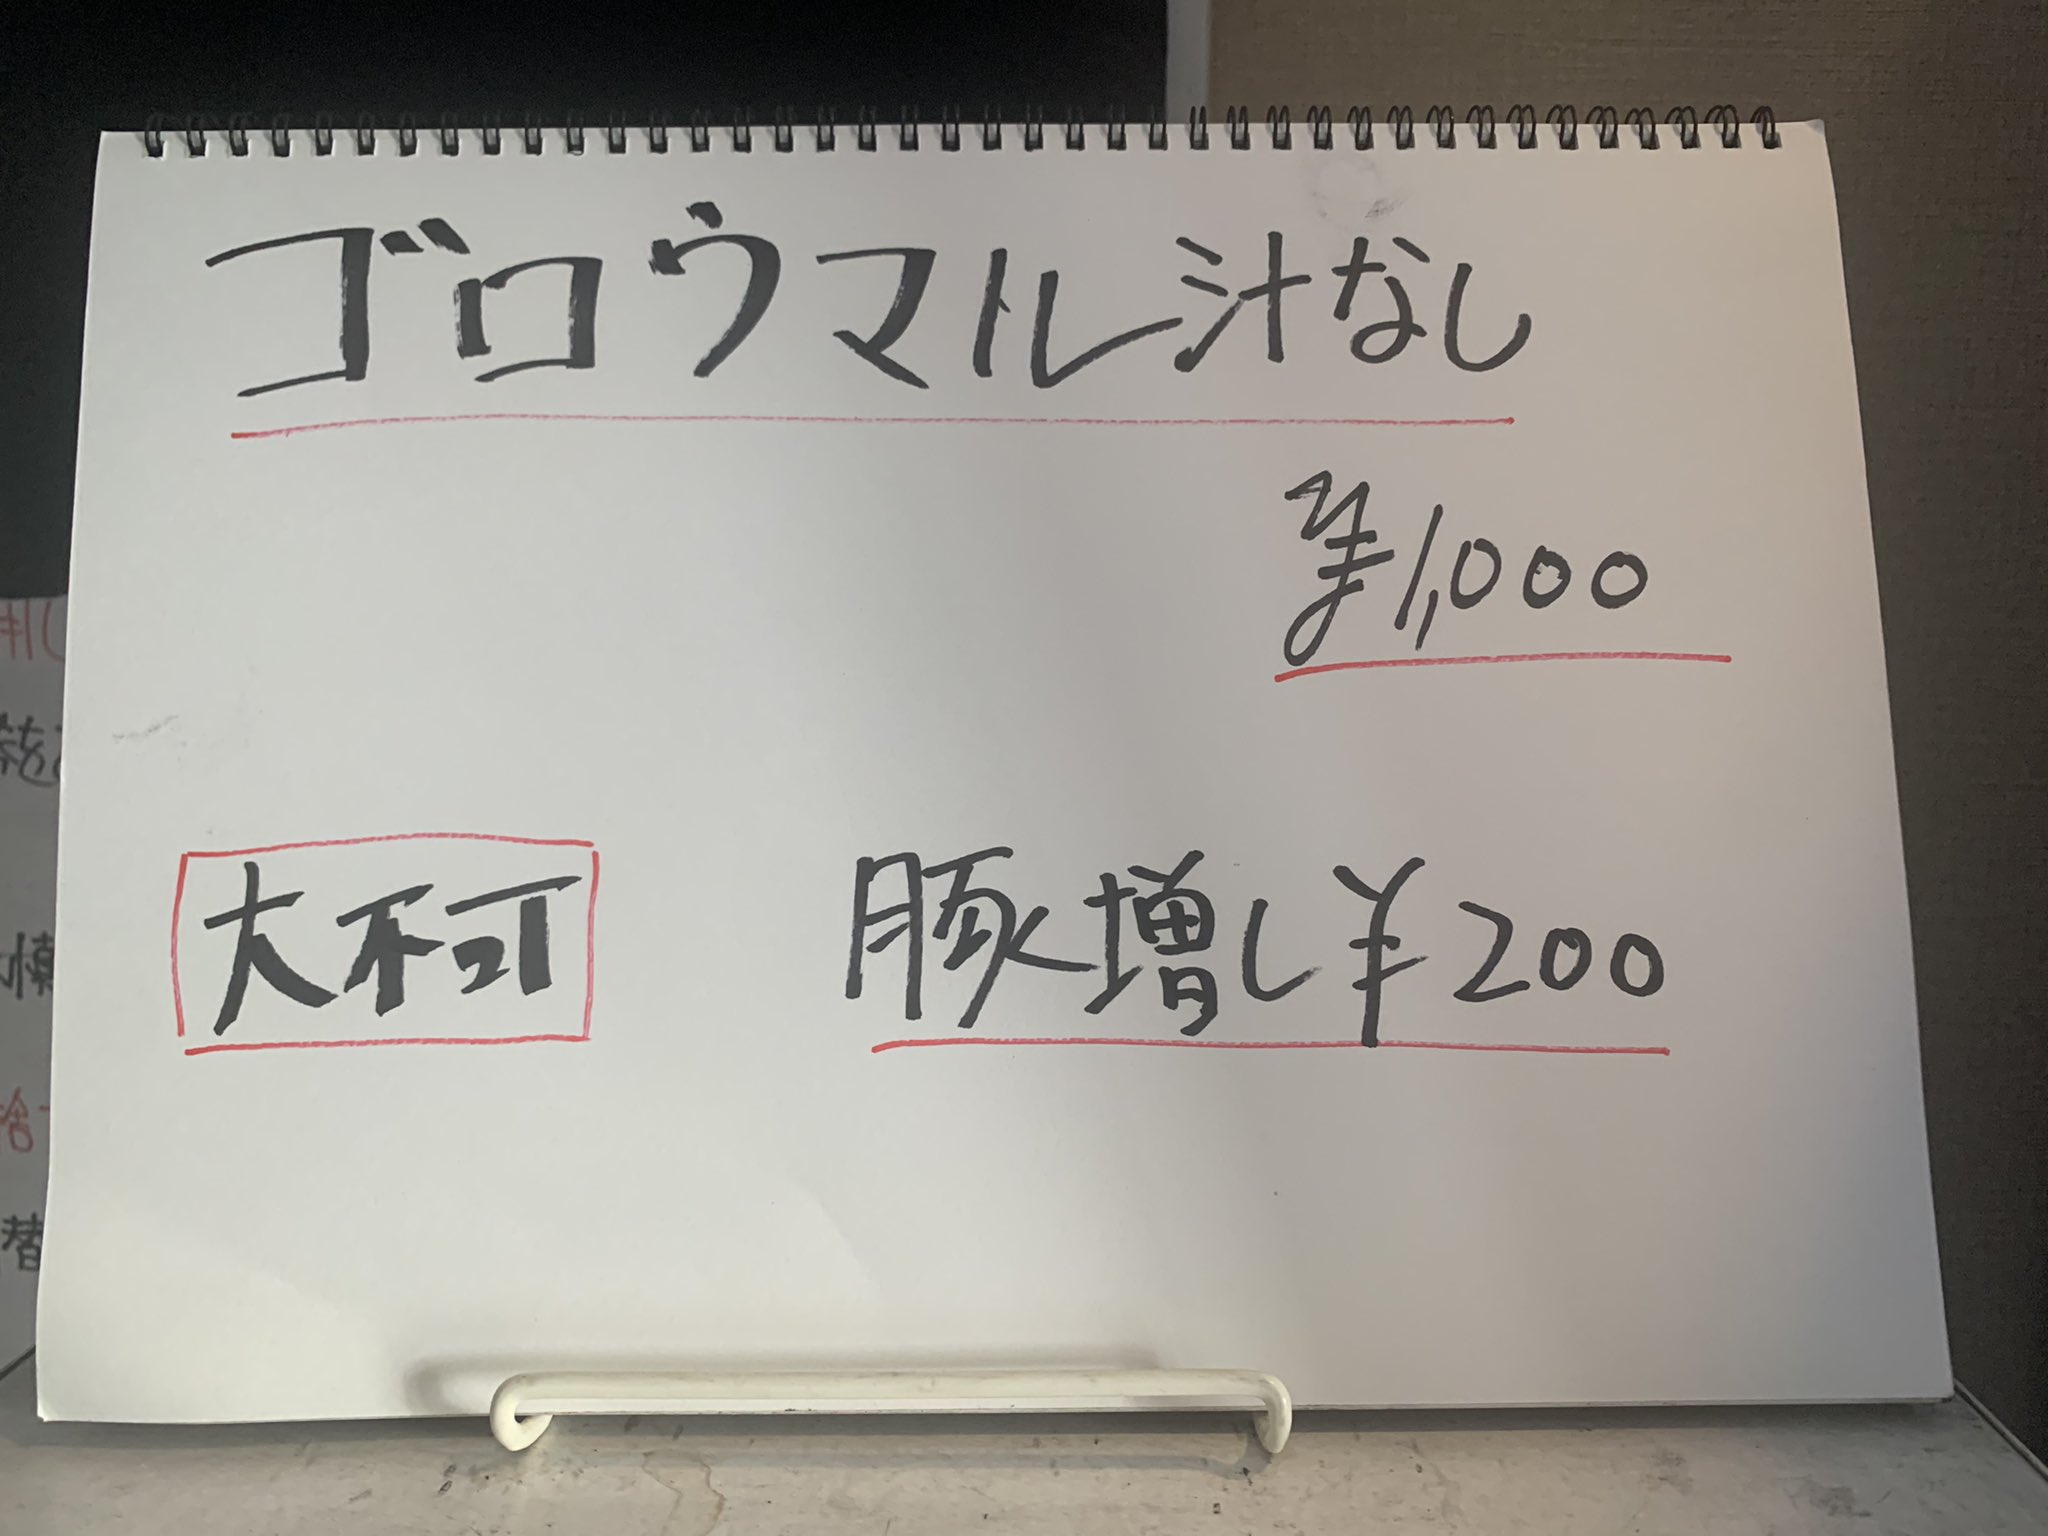 ゴロウマル汁なし
¥1,000
大不可
豚増し¥200